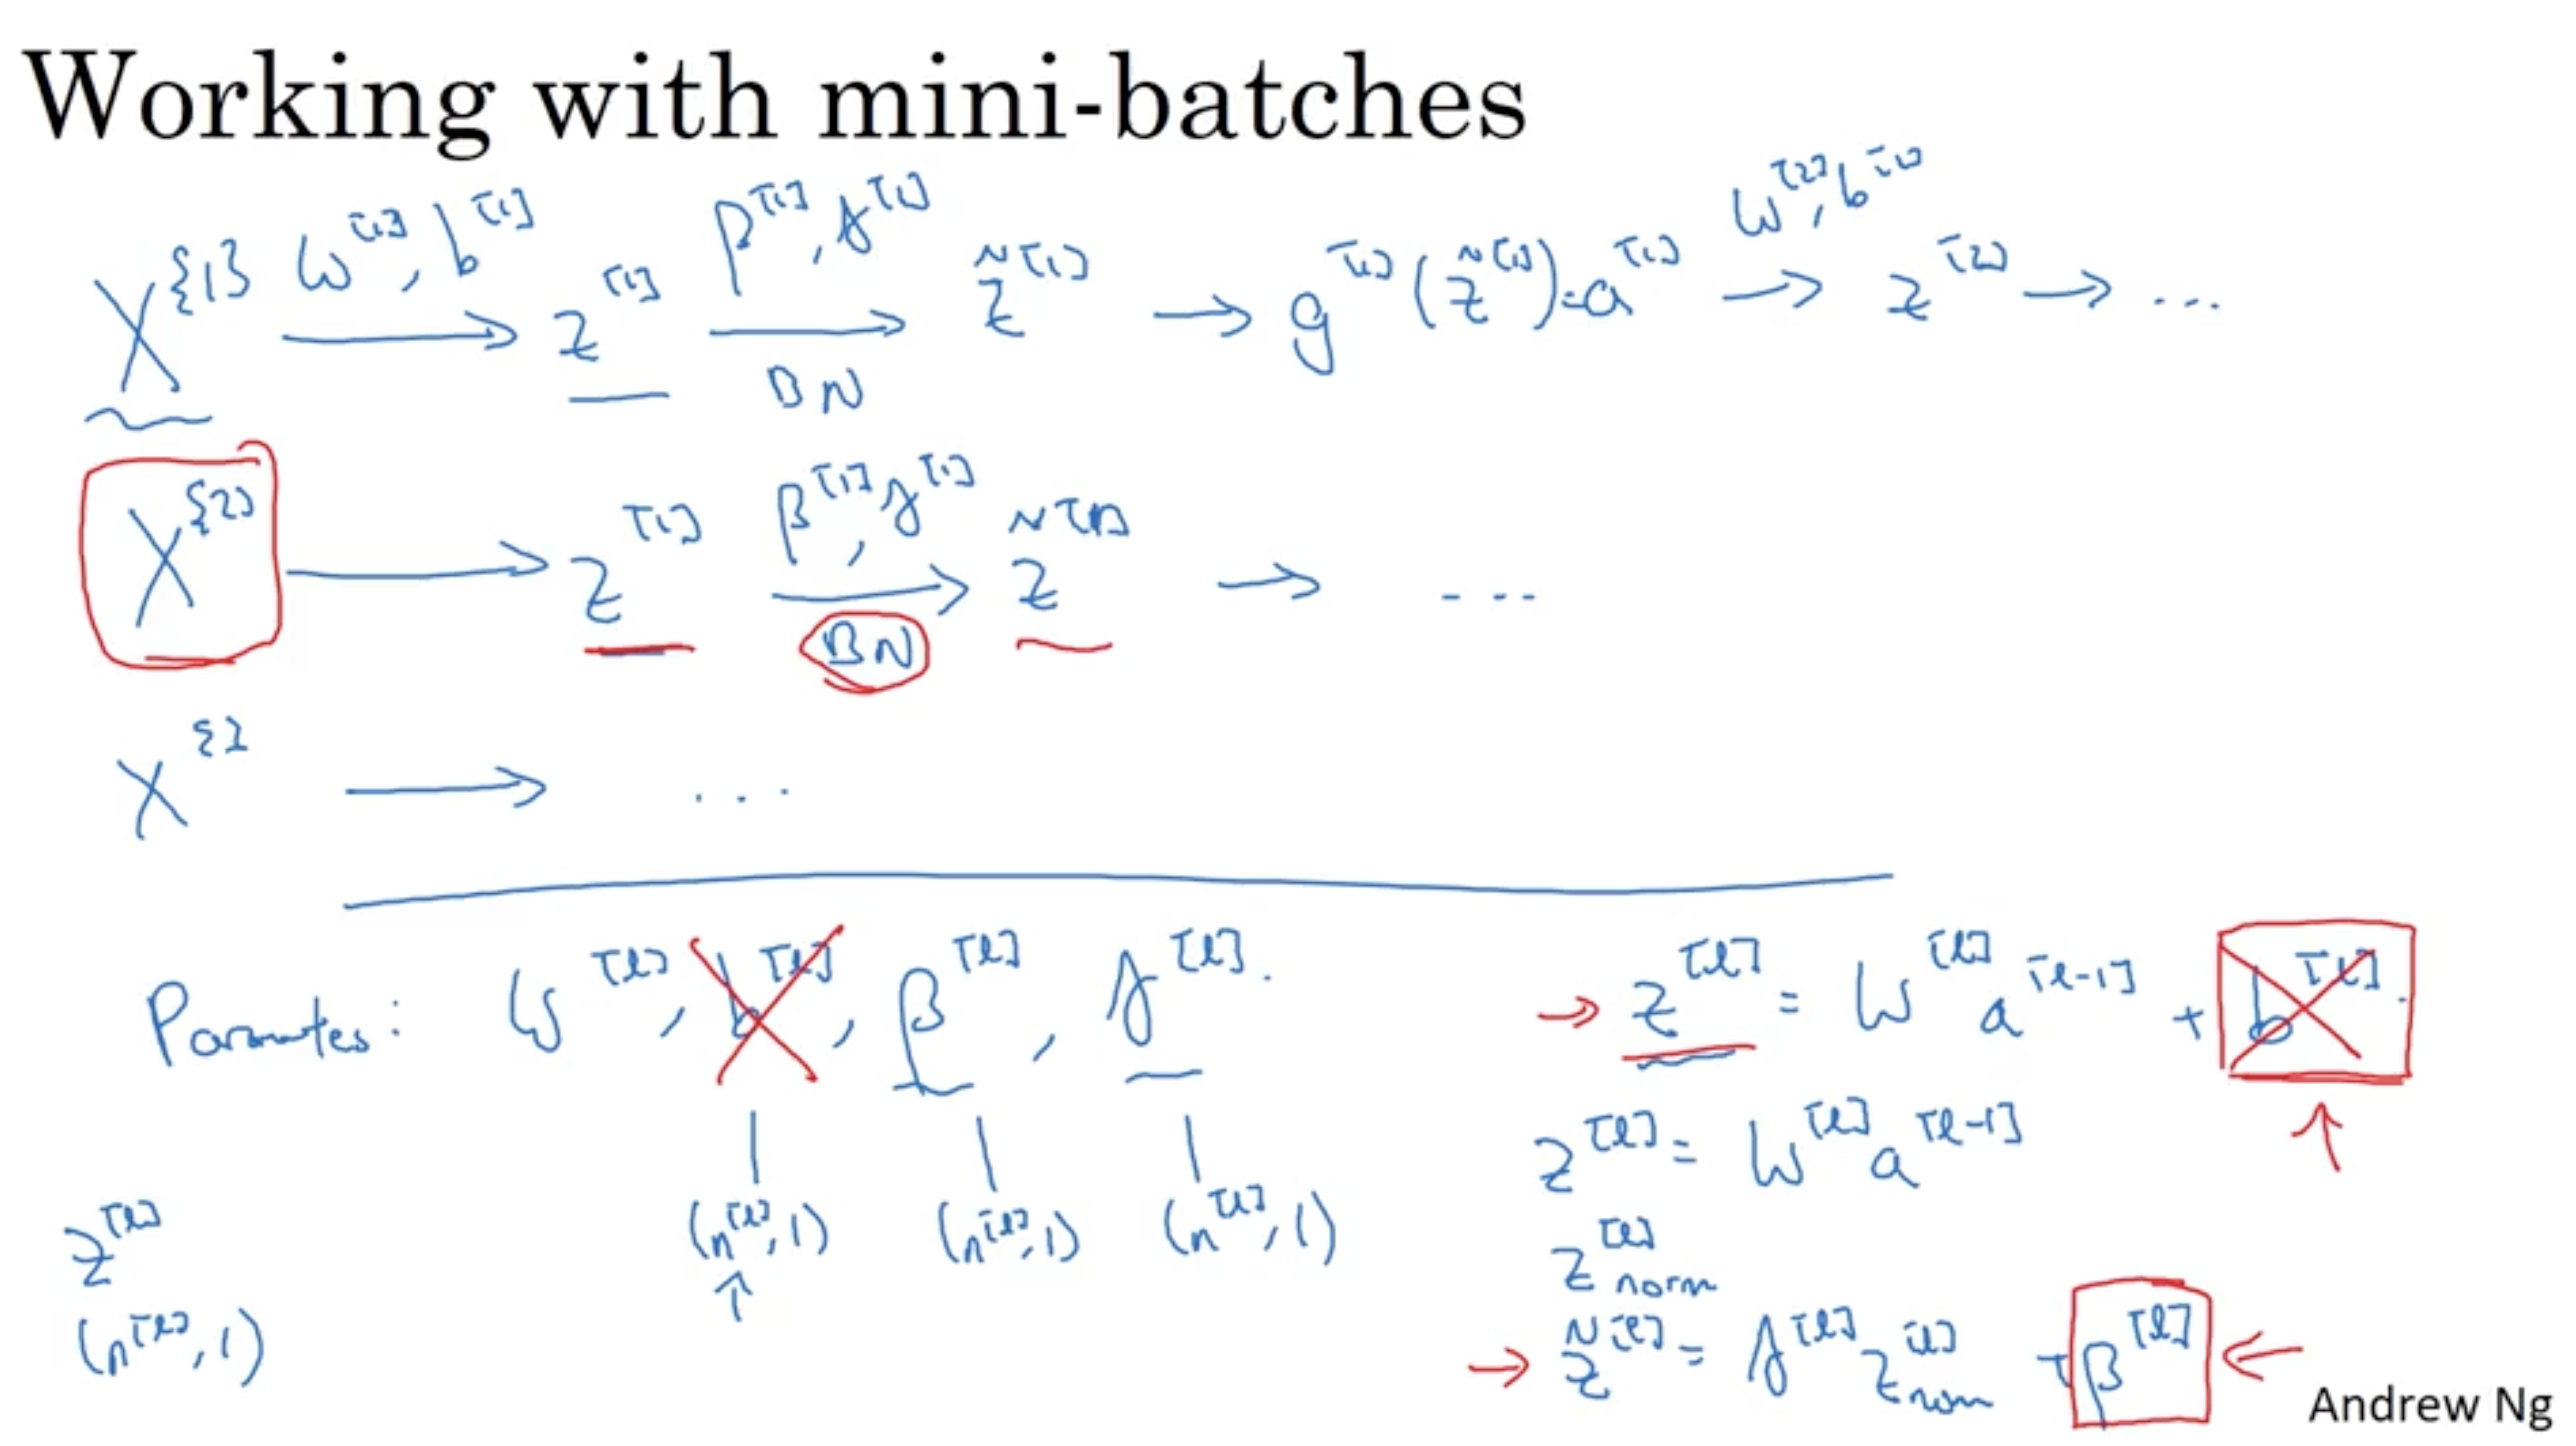 Working with mini-batches
X^{1} W^[1], b^[1] → z^[1] β^[1], γ^[1] → BN z̃^[1] → g^[1](z̃^[1]) = a^[1] W^[2], b^[2] → z^[2] → ...
X^{2} → z^[1] β^[1], γ^[1] → BN z̃^[1] → ...
X^{3} → ...
Parameters: W^[l], b^[l], β^[l], γ^[l].
(n^[l], 1) (n^[l], 1) (n^[l], 1)
↑
z^[l]
(n^[l], 1)
→ z^[l] = W^[l] a^[l-1] + b^[l].
↑
z^[l] = W^[l] a^[l-1]
z^[l] norm
→ z̃^[l] = γ^[l] z^[l] norm + β^[l] ←
Andrew Ng